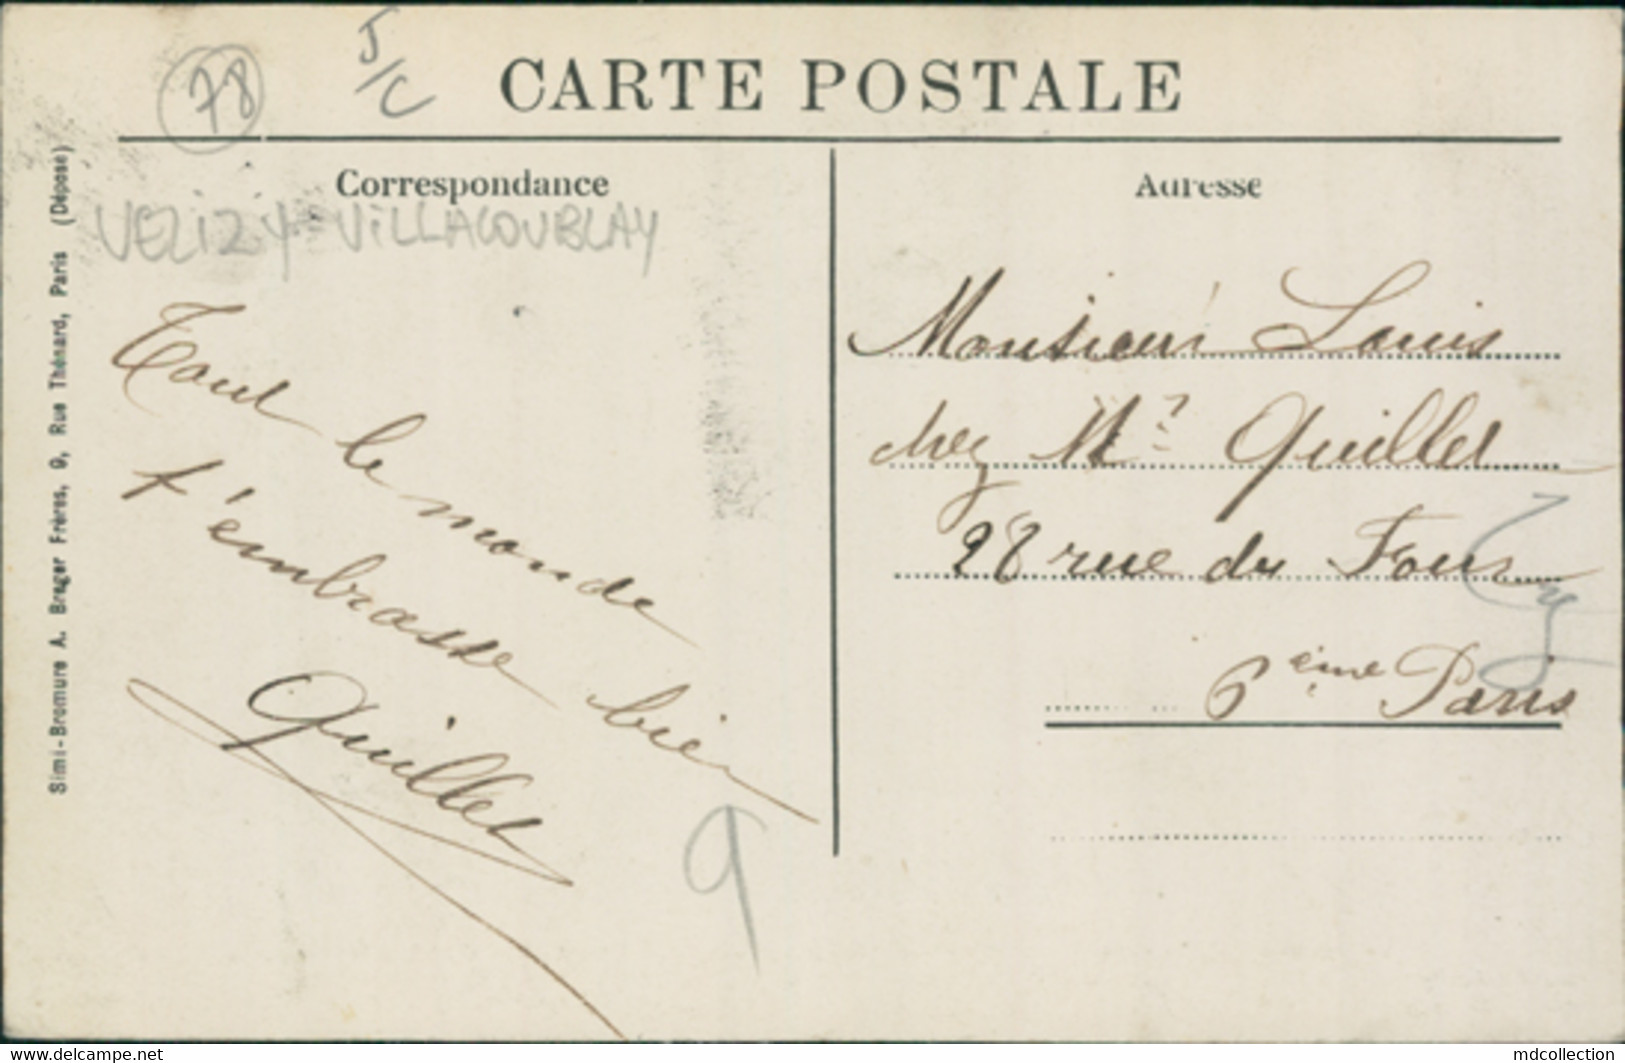 78
J/C
CARTE POSTALE
Correspondance
Adresse
VELIZY VILLACOUBLAY
Simi-Bromure A. Breger Frères, 9, Rue Thénard, Paris (Déposé)
Tout le monde
t'embrasse bien
Quillet
9
Monsieur Louis
chez Mr Quillet
28 rue du Four
6ème Paris
https://www.delcampe.net
mdcollection